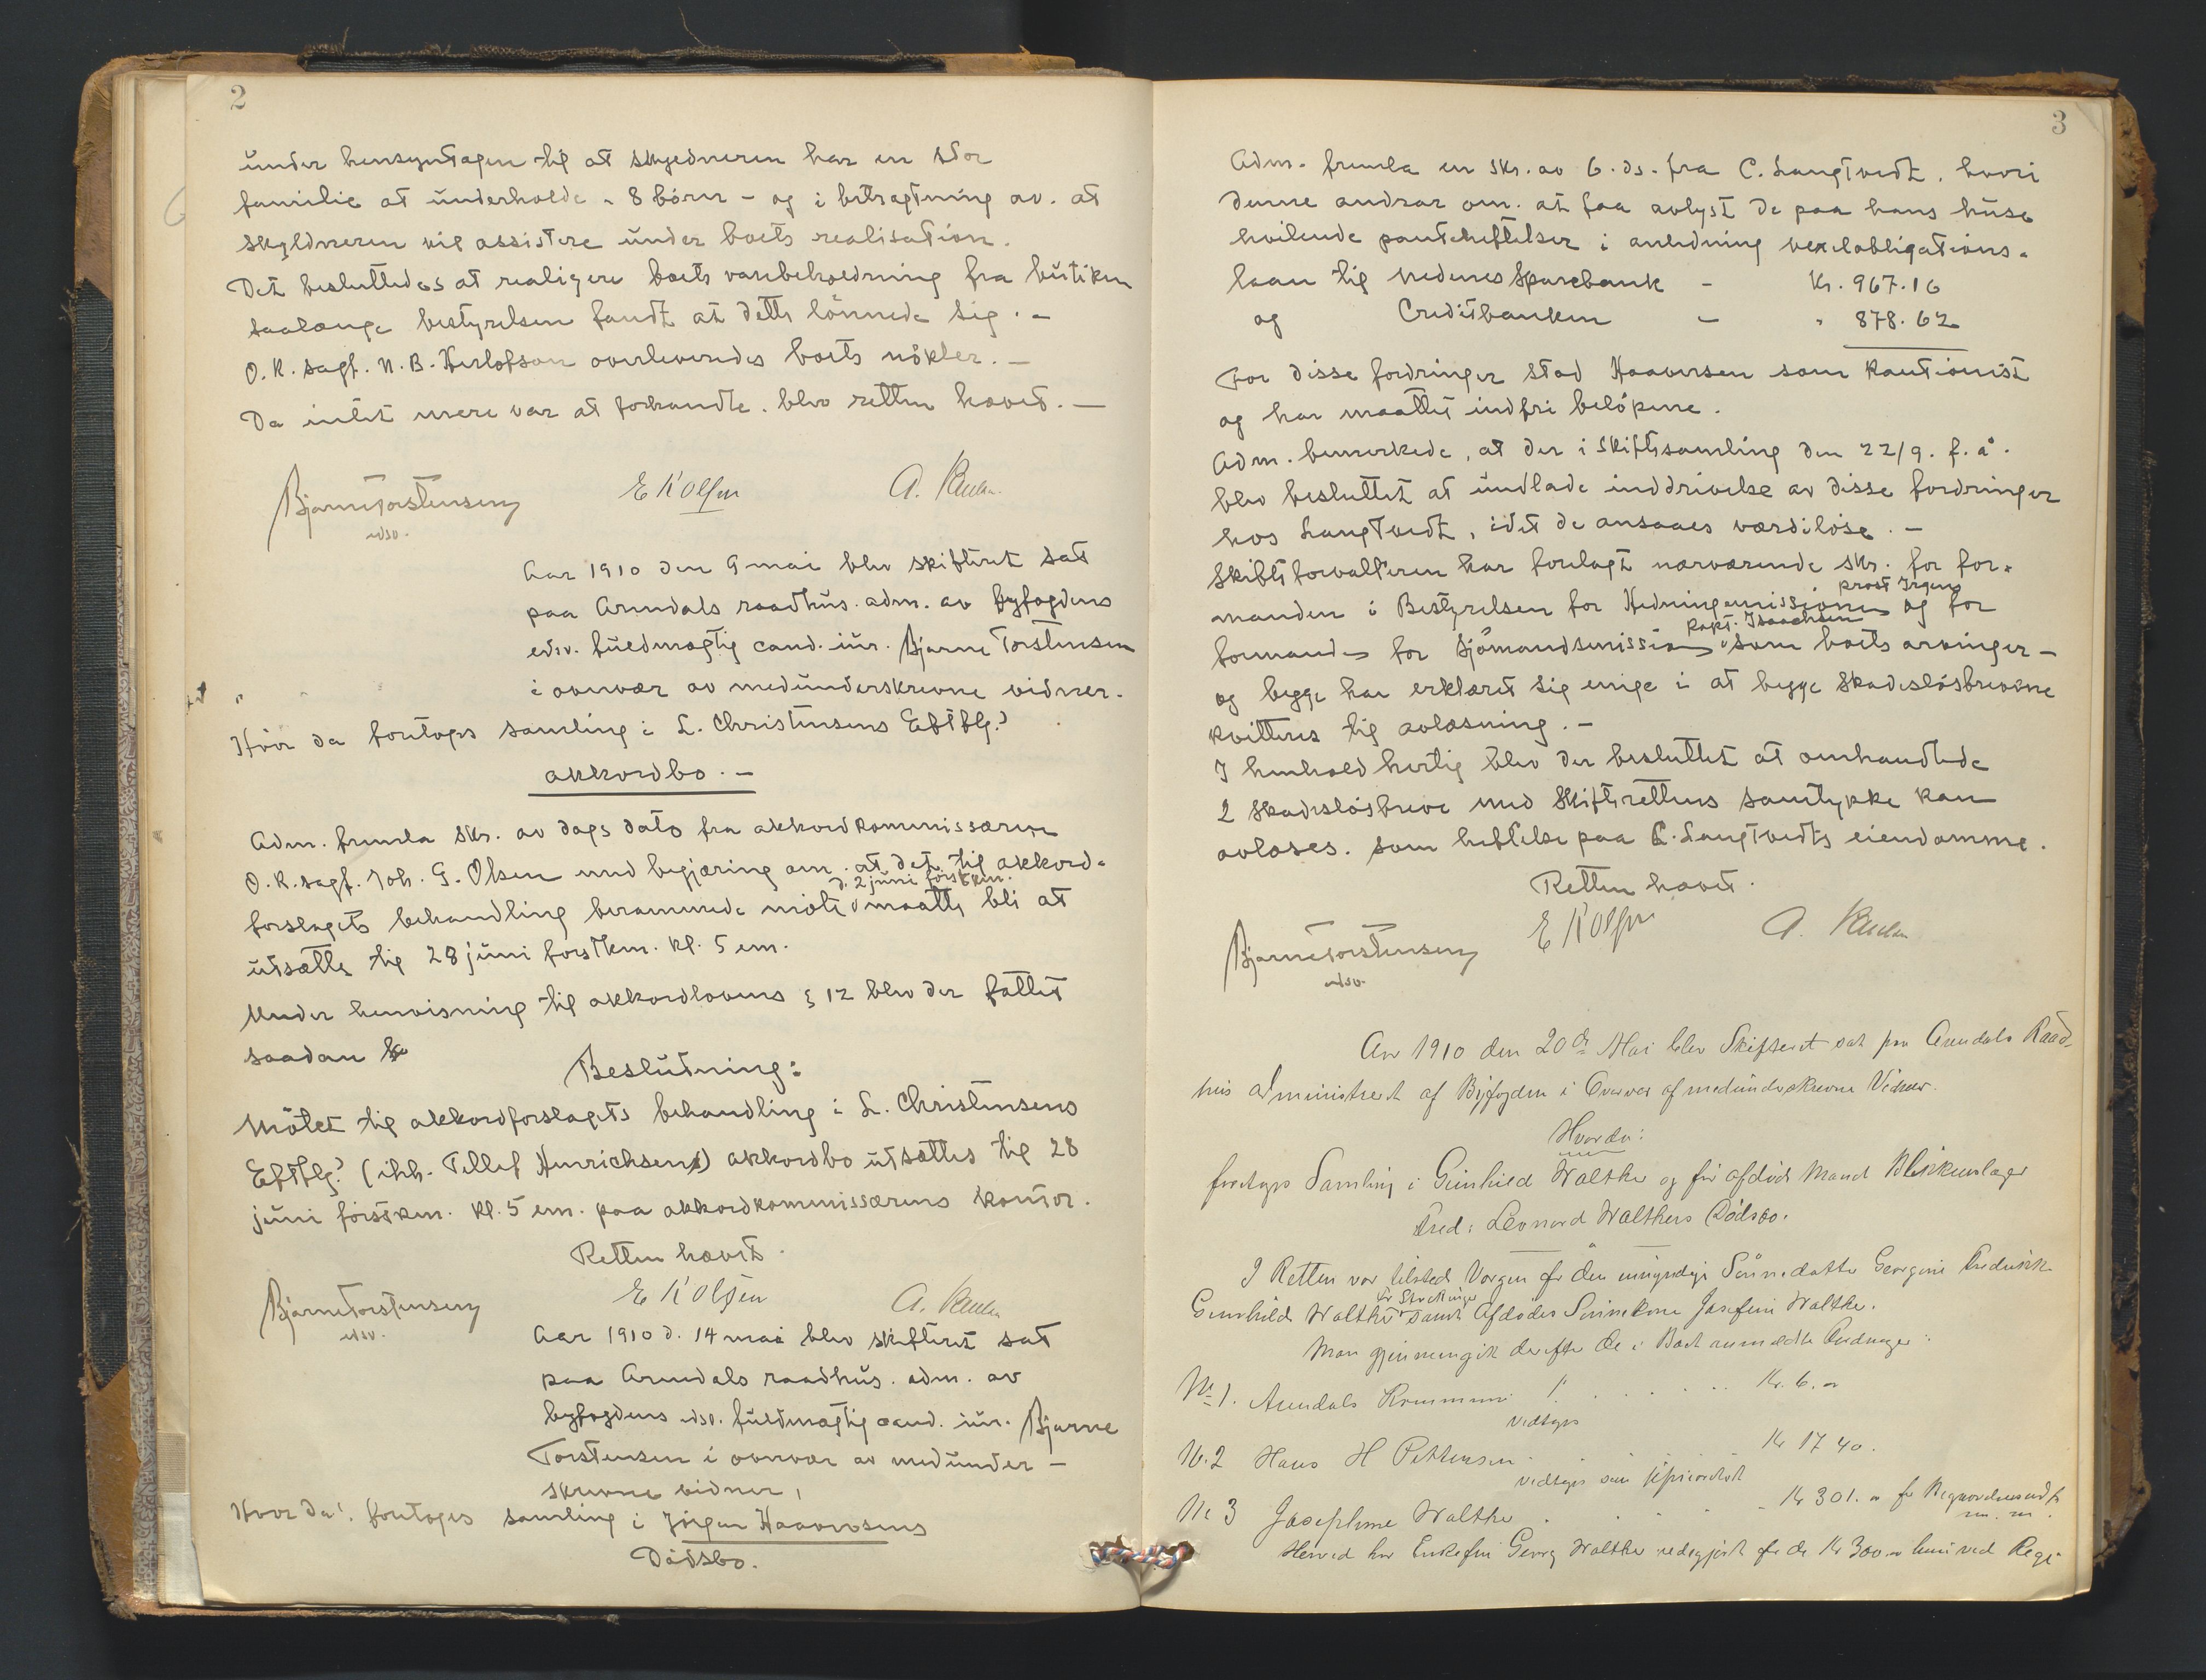 2
under hensyntagen til at skyldneren har en stor
familie at underholde - 8 börn - og i betragtning av. at
skyldneren vil assistere under boets realisation.
Det besluttedes at realisere boets varebeholdning fra butiken
saalænge bestyrelsen fandt at dette lönnede sig. -
O.R.sagf. N.B. Herlofson overleveredes boets nökler. -
Da intet mere var at forhandle. blev retten hævet. -
Bjarne Torstensen E K Olsen A.
edsv.
Aar 1910 den 9 mai blev skifteret sat
paa Arendals raadhus. adm. av byfogdens
edsv. fuldmægtig cand. jur. Bjarne Torstensen
i overvær av medunderskrevne vidner.
Hvor da foretoges samling i L. Christensens Eftflg.s
akkordbo. -
Adm. fremla skr. av dags dato fra akkordkommissæren
O.R.sagf. Joh. G. Olsen med begjæring om. at det til akkord-
forslagets behandling berammede möte d. 2 juni förstkm. maatte bli at
utsætte til 28 juni förstkm. kl. 5 em.
Under henvisning til akkordlovens § 12 blev der fattet
saadan
Beslutning:
Mötet til akkordforslagets behandling i L. Christensens
Eftflg.s (ihh. Tellef Henrichsen) akkordbo utsættes til 28
juni förstkm. kl. 5 em. paa akkordkommissærens kontor.
Retten hævet.
Bjarne Torstensen E K Olsen A.
edsv.
Aar 1910 d. 14 mai blev skifteret sat
paa Arendals raadhus. adm. av
byfogdens edsv. fuldmægtig cand. jur. Bjarne
Torstensen i overvær av medunder-
skrevne vidner,
Hvor da: foretoges samling i Jörgen Haaversens
Dödsbo.
3
Adm. fremla en skr. av 6. ds. fra C. Langtvedt, hvori
denne andrar om. at faa avlyst de paa hans huse
hvilende panteheftelser i anledning vexelobligations-
laan til Nedenes Sparebank - Kr. 967.16
og Creditbanken - " 878.62
For disse fordringer stod Haaversen som kautionist
og har maattet indfri belöpene.
Adm. bemerkede, at der i skiftesamling den 22/9. f.å.
blev besluttet at undlade inddrivelse av disse fordringer
hos Langtvedt, idet de ansaaes værdilöse. -
Skifteforvalteren har forelagt nærværende skr. for for-
manden i Bestyrelsen for Hedningemissionen prost Irgens og for
formanden for Sjömandsmission kapt. Isaachsen som boets arvinger -
og begge har erklæret sig enige i at begge skadeslösbrevene
kvitteres til avlæsning. -
I henhold hertil blev der besluttet at omhandlede
2 skadeslösbreve med Skifterettens samtykke kan
avlæses. som heftelse paa C. Langtvedts eiendomme.
Retten hævet.
Bjarne Torstensen E K Olsen A.
edsv.
Aar 1910 den 20de Mai blev Skifteret sat paa Arendals Raad-
hus administreret af Byfogden i Overvær af medunderskrevne Vidner.
Hvorda:
foretoges Samling i Gunhild Walther og før afdöde Mand Blikkenslager
Fred: Leonard Walthers Dödsbo.
I Retten var tilstede Værgen for den umyndige Sönnedatter Georgine Fredrikke
Gunhild Walther samt Afdödes Sönnekone Josefine Walther.
Man gjennemgik derefter de i Boet anmeldte Fordringer:
No 1. Arendals Kommune . . . . Kr. 6. "
vedtages
No. 2 Hans H Pettersen Kr 17 40.
vedtages som uprioriteret
No 3 Josephine Walther . . . . Kr 301. " for Begravelsesudg.
m. m.
Herved har Enkefru Georg Walther redegjort for de Kr 300 " hun ved Regi-